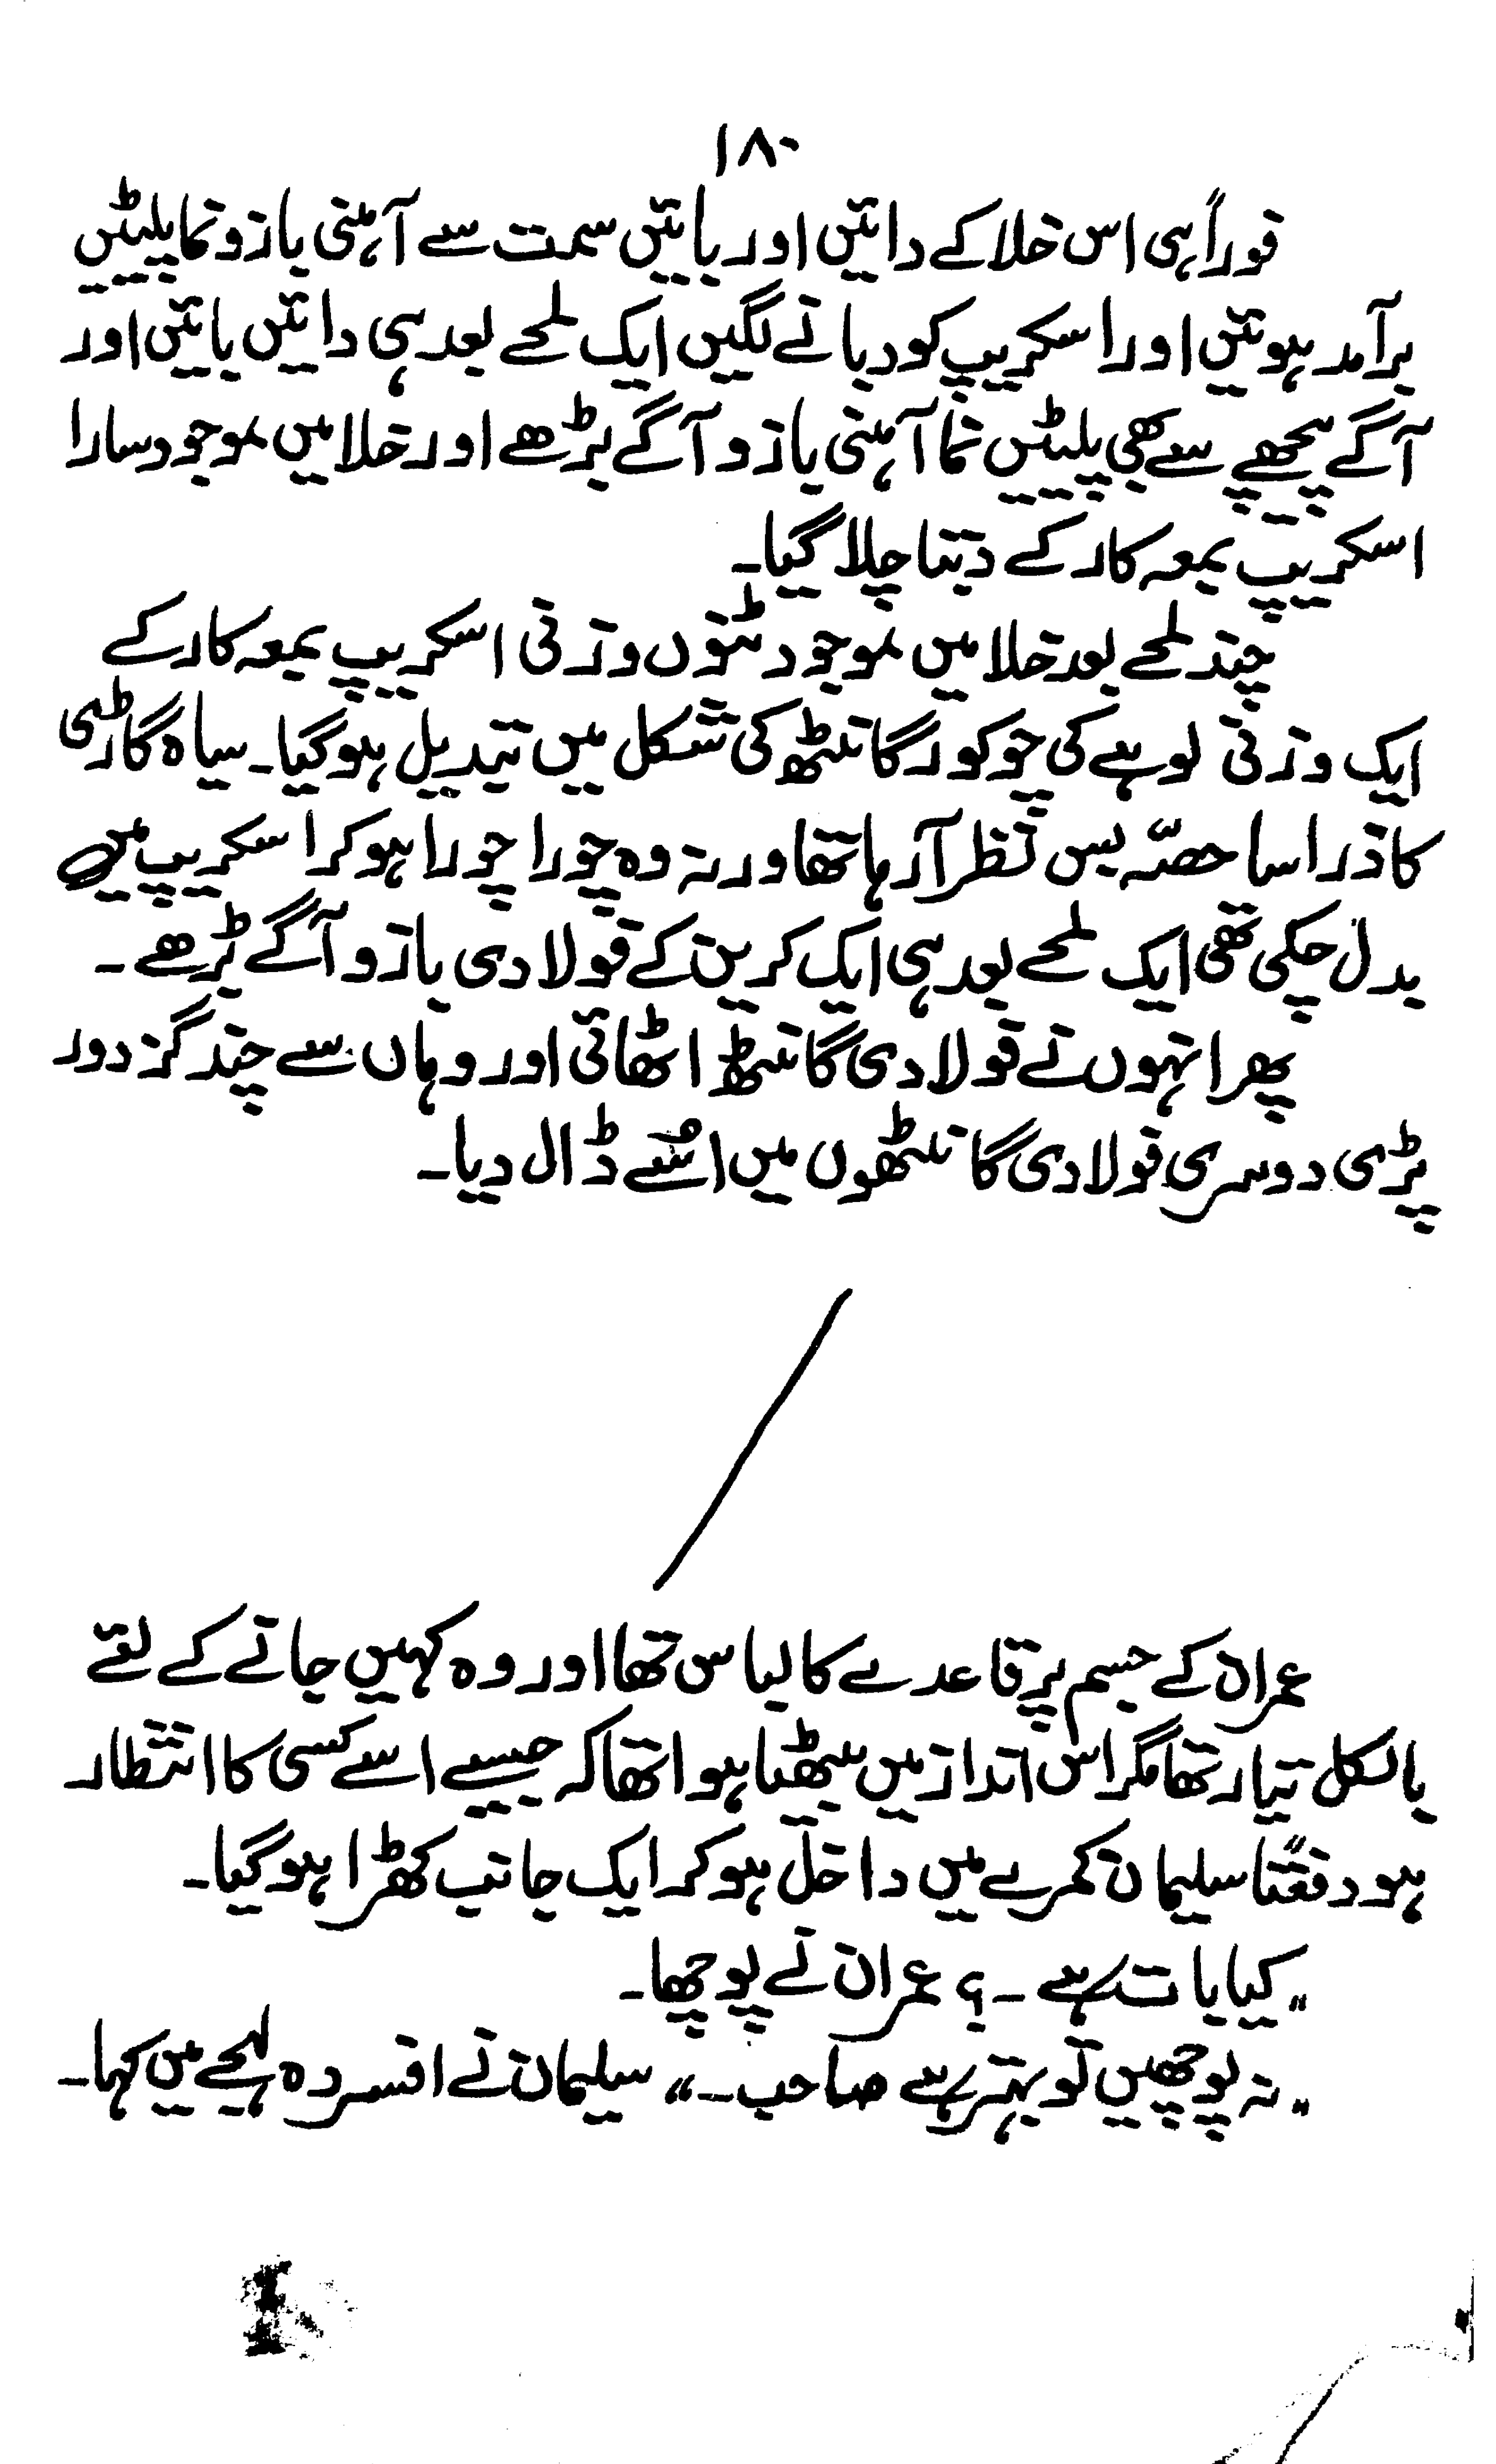 ۱۸۰
فوراً ہی اس خلا کے دائیں اور بائیں سمت سے آہنی بازو نما پلیٹیں
برآمد ہوئیں اور اسکریپ کو دبانے لگیں ایک لمحے بعد ہی دائیں بائیں اور
آگے پیچھے سے بھی پلیٹیں نما آہنی بازو آگے بڑھے اور خلا میں موجود سارا
اسکریپ بمعہ کار کے دبتا چلا گیا۔
چند لمحے بعد خلا میں موجود ٹنوں وزنی اسکریپ بمعہ کار کے
ایک وزنی لوہے کی چوکور گانٹھ کی شکل میں تبدیل ہو گیا۔ سیاہ گاڑی
کا ذرا سا حصّہ بس نظر آ رہا تھا ورنہ وہ چورا چورا ہو کر اسکریپ میں
بدل چکی تھی ایک لمحے بعد ہی ایک کرین کے فولادی بازو آگے بڑھے۔
پھر انہوں نے فولادی گانٹھ اٹھائی اور وہاں سے چند گز دور
پڑی دوسری فولادی گانٹھوں میں اسُے ڈال دیا۔
عمران کے جسم پر قاعدے کا لباس تھا اور وہ کہیں جانے کے لئے
بالکل تیار تھا مگر اس انداز میں بیٹھا ہوا تھا کہ جیسے اسے کسی کا انتظار
ہو دفعتاً سلیمان کمرے میں داخل ہو کر ایک جانب کھڑا ہو گیا۔
"کیا بات ہے ۔؟ عمران نے پوچھا۔
"نہ پوچھیں تو بہتر ہے صاحب۔" سلیمان نے افسردہ لہجے میں کہا۔